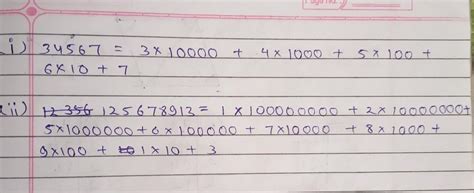 Page No.
i) 34567 = 3×10000 + 4×1000 + 5×100 +
6×10 + 7
ii) 125678913 = 1×100000000 + 2×10000000+
5×1000000+6×100000 + 7×10000 + 8×1000+
9×100 + 1×10 + 3